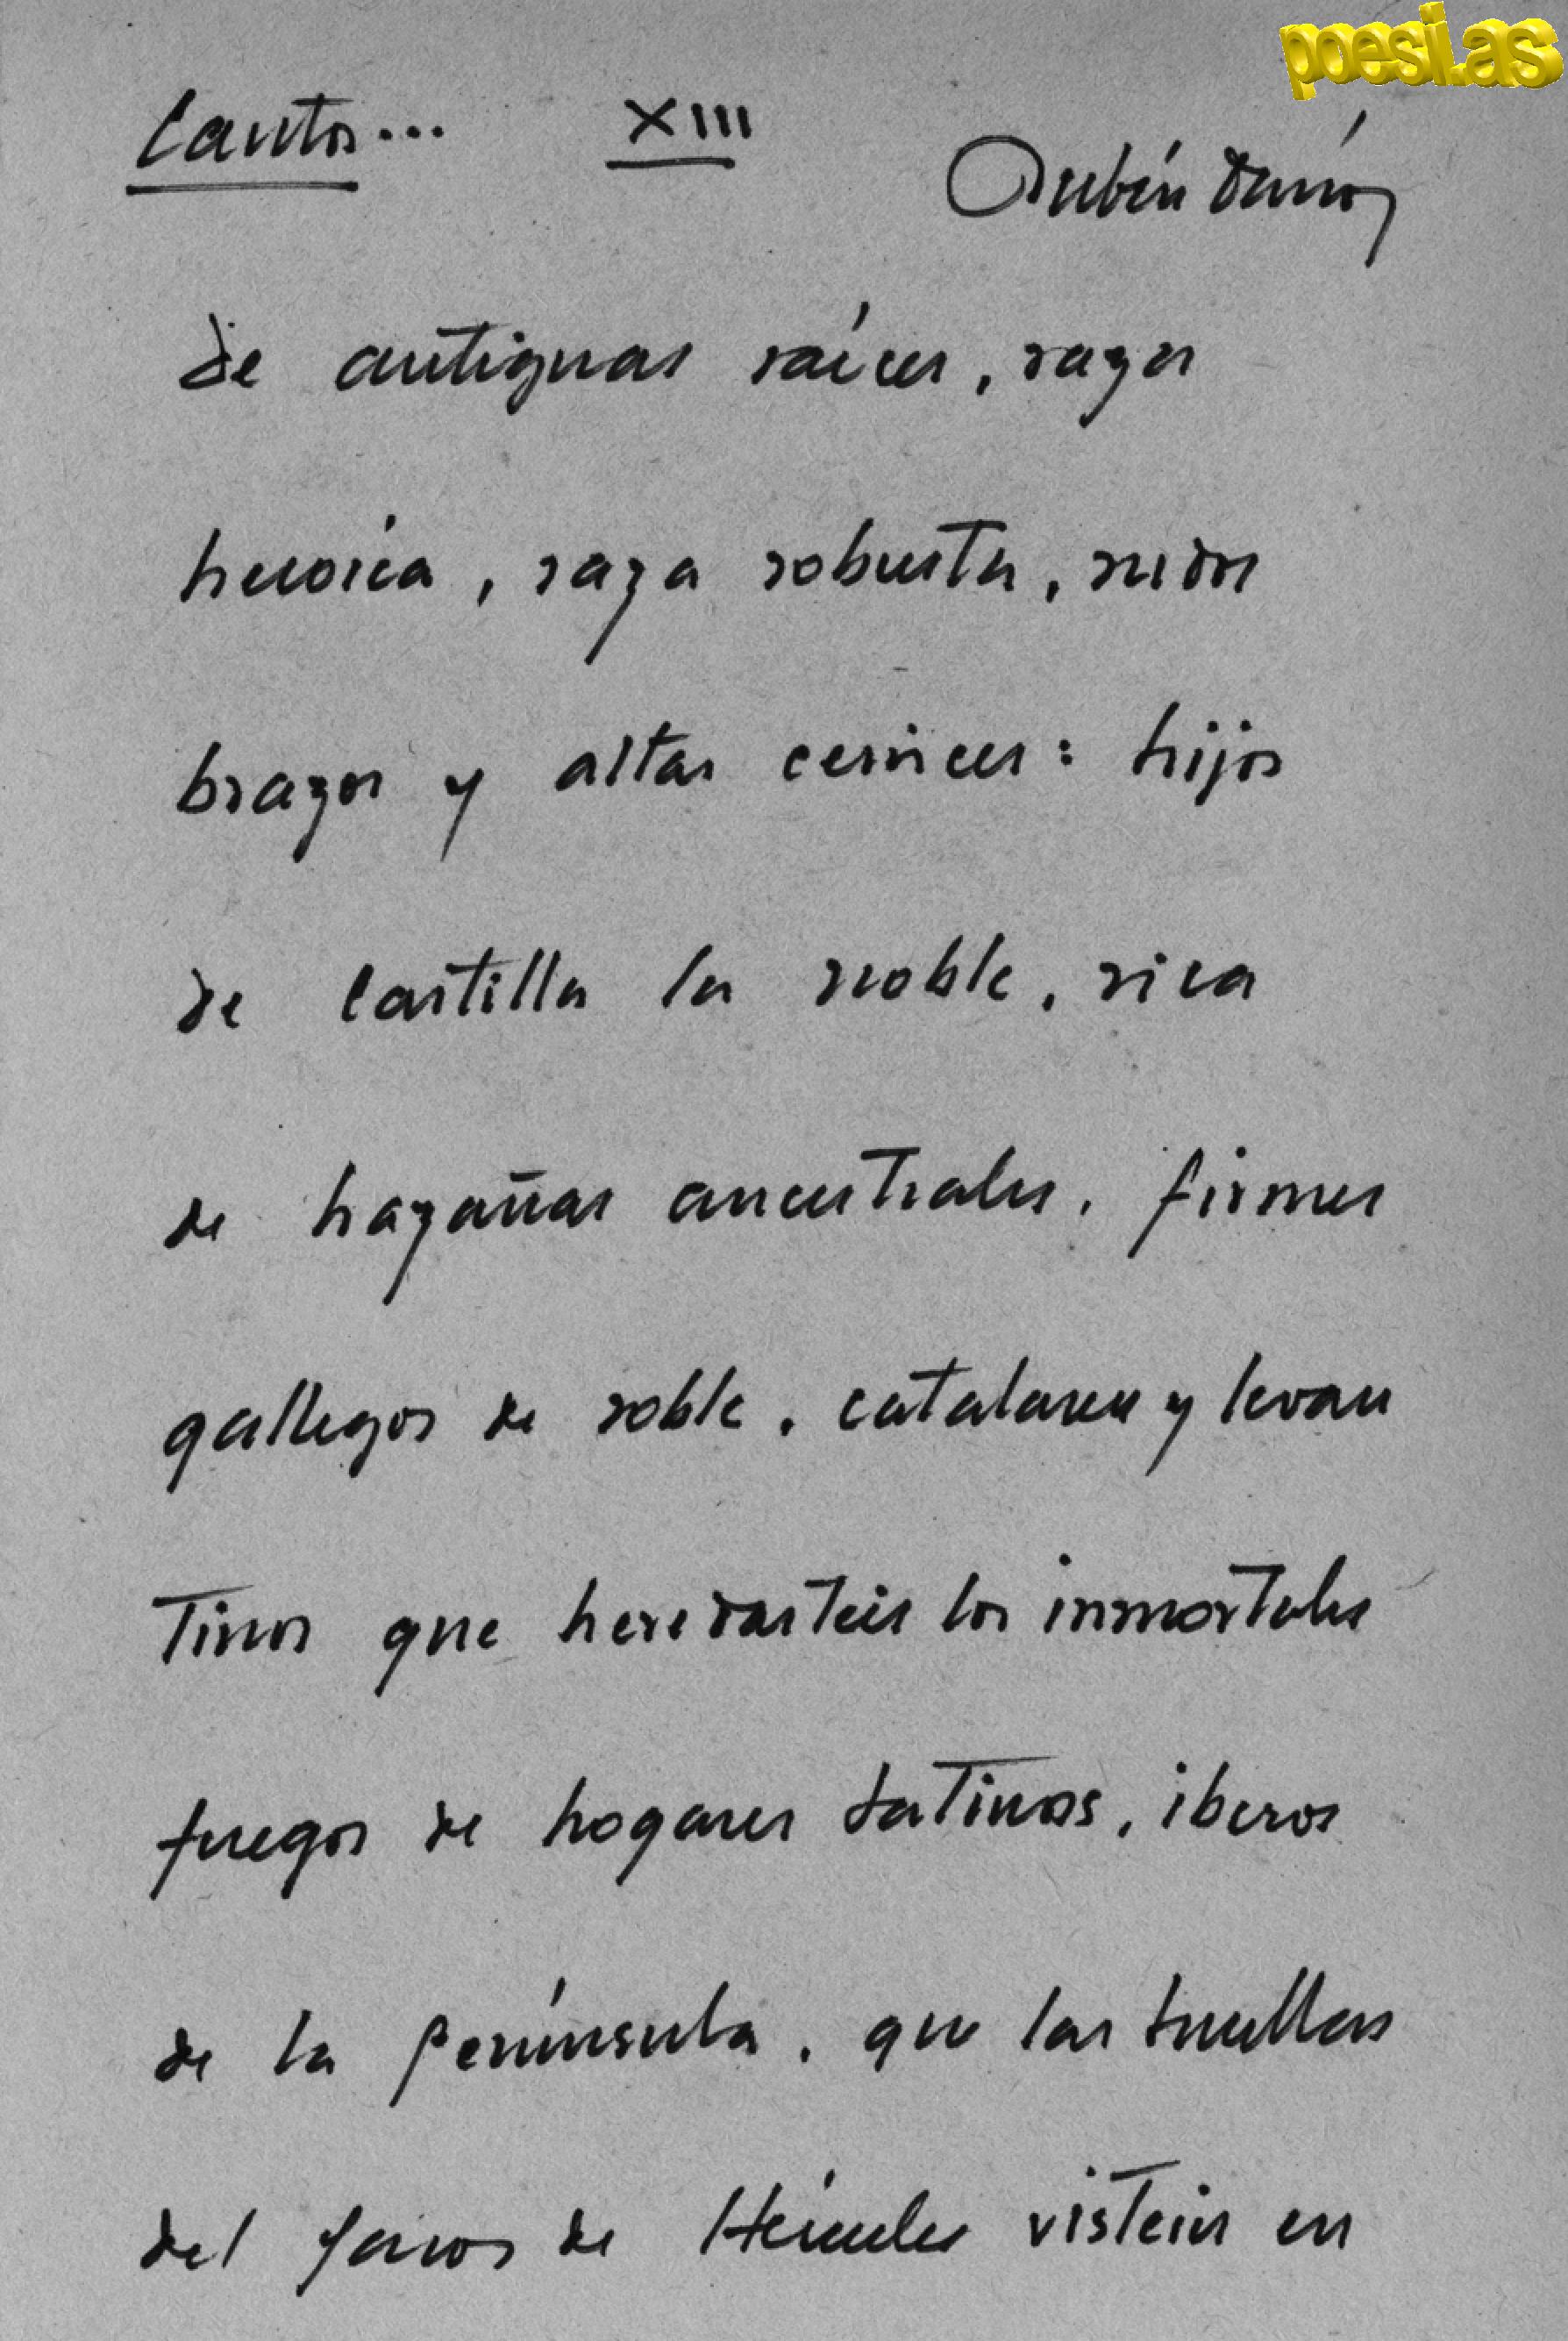 Canto... XIII
Rubén Darío
de antiguas raíces, raza
heroica, raza robusta, rudos
brazos y altas cervices: hijos
de Castilla la noble, rica
de hazañas ancestrales, firmes
gallegos de roble, catalanes y levan
tinos que heredasteis los inmortales
fuegos de hogares latinos, iberos
de la península, que las huellas
del paso de Hércules visteis en
poesi.as